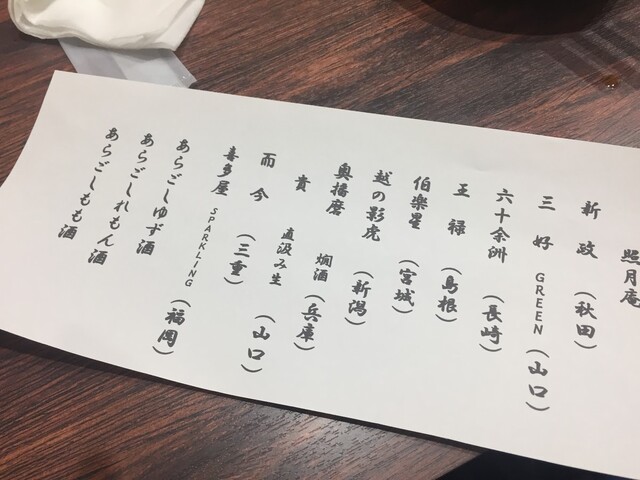 照月庵
新政 (秋田)
三好 GREEN (山口)
六十余洲 (長崎)
王禄 (島根)
伯楽星 (宮城)
越の影虎 (新潟)
奥播磨 燗酒 (兵庫)
貴 直汲み生 (山口)
而今 (三重)
喜多屋 SPARKLING (福岡)
あらごしゆず酒
あらごしれもん酒
あらごしもも酒